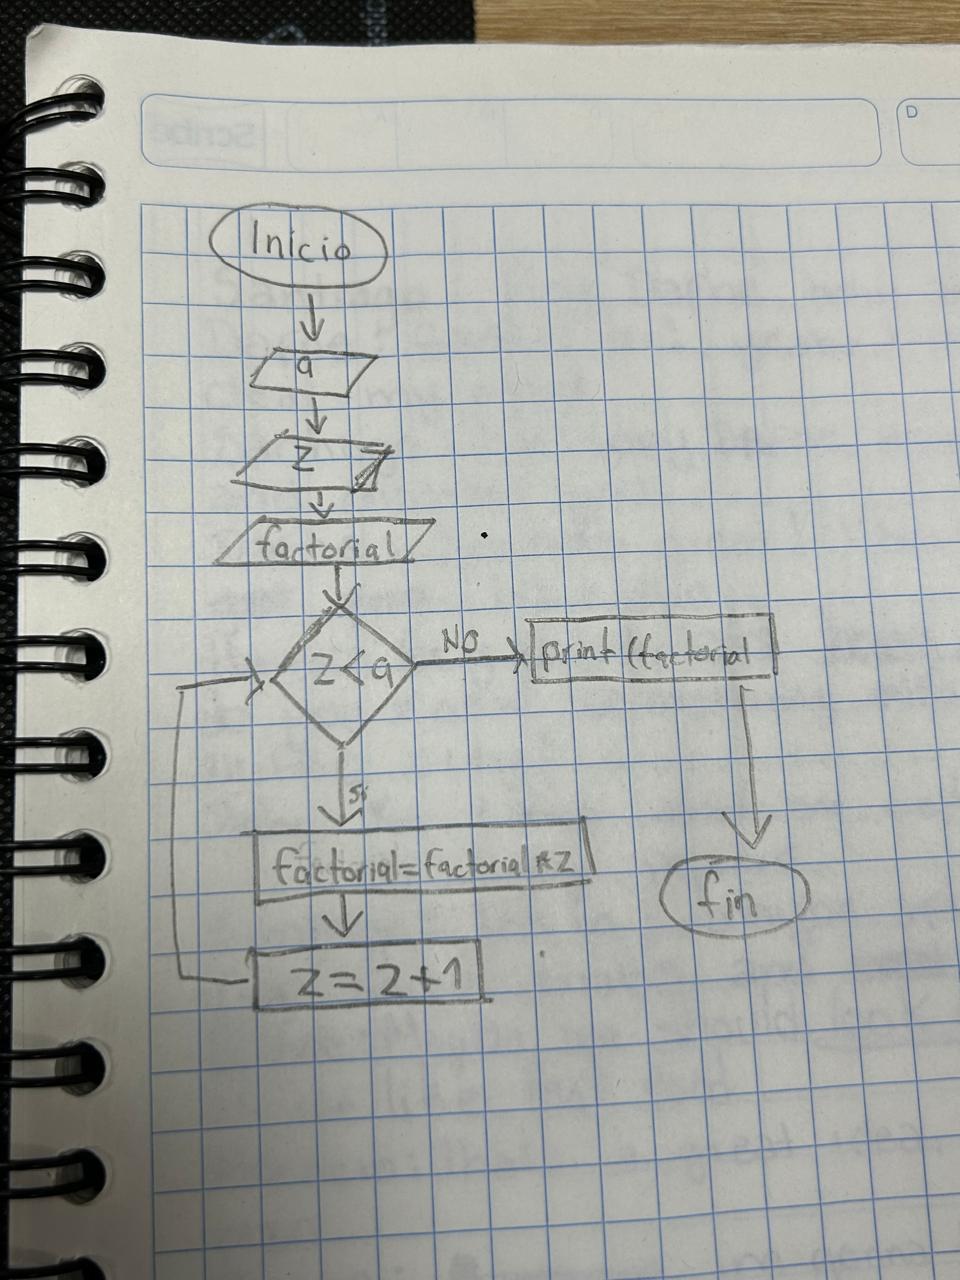 Inicio
a
z
factorial
z<a
NO
print (factorial
si
factorial=factorial*z
fin
z=z+1
D